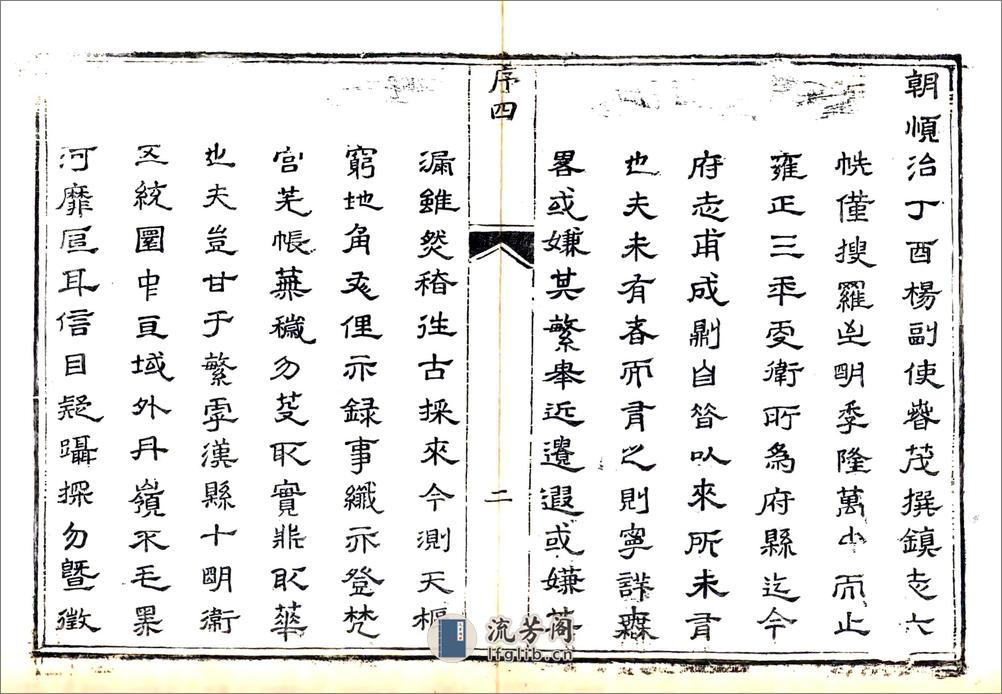 朝順治丁酉楊副使春茂撰鎮志六
帙僅搜羅迄明季隆萬而止
雍正三年更衛所為府縣迄今
府志甫成剏自昔以來所未有
也夫未有者而有之則寧詳無
畧或嫌其繁舉近遺遐或嫌其
序四
二
漏雖然稽往古採來今測天樞
窮地角文俚亦録事纖亦登梵
宫芜帳蕪穢勿芟取實非取華
也夫豈甘于繁雩漢縣十明衛
五統圜中亘域外丹嶺不毛黑
河靡厎耳信目疑躡探勿暨徵
流芳阁
lfglib.cn